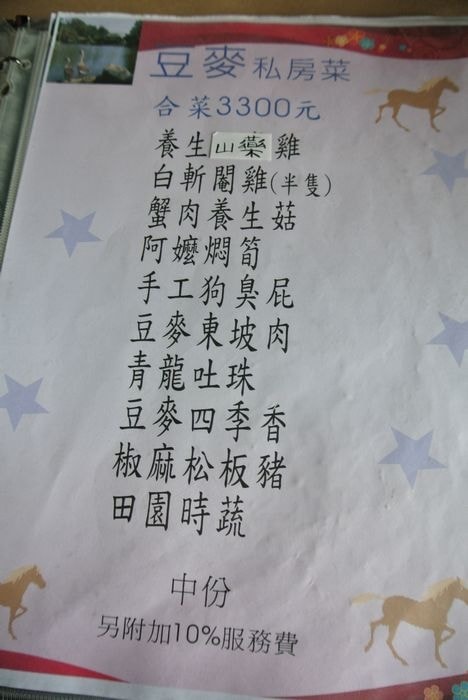 豆麥私房菜
合菜3300元
養生山藥雞
白斬閹雞(半隻)
蟹肉養生菇
阿嬤燜筍
手工狗臭屁
豆麥東坡肉
青龍吐珠
豆麥四季香
椒麻松板豬
田園時蔬
中份
另附加10%服務費